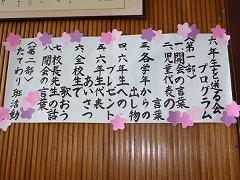 六年生を送る会
プログラム
〈第一部〉
一.開会の言葉
二.児童代表の
言葉
三.各学年からの
出し物
四.六年生への
プレゼント
五.六年生代表
あいさつ
六.全校で
歌おう
七.校長先生の話
八.閉会の言葉
〈第二部〉
たてわり班活動